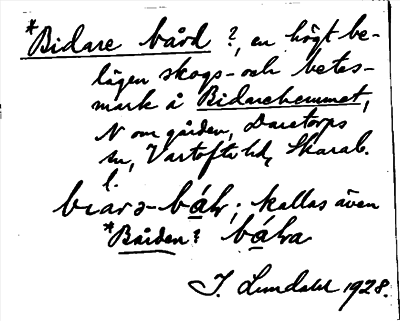 *Bidare bård ?, en högt be-
lägen skogs- och betes-
mark å Bidarehemmet,
N om gården, Daretorps
sn, Vartofta hd, Skarab.
l.
biarə-bår; kallas även
*Bården? båra
J. Lundahl 1928.